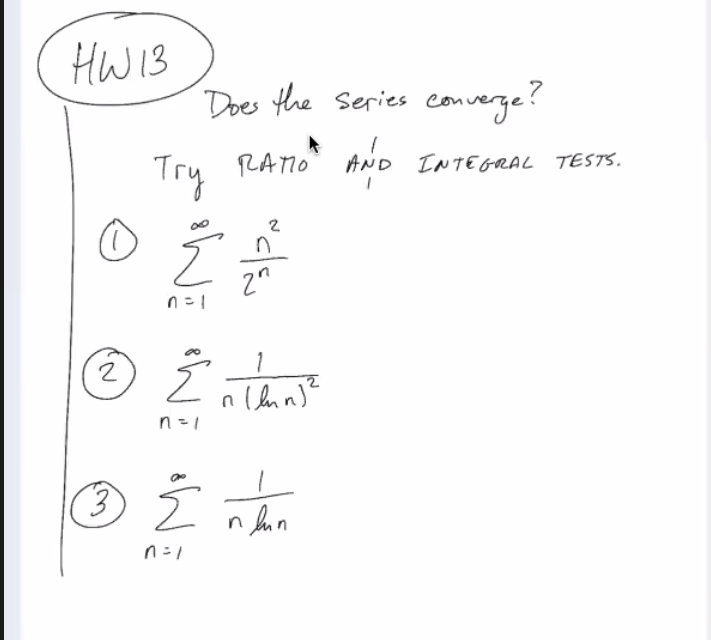 HW13
Does the series converge?
Try RATIO AND INTEGRAL TESTS.
① ∑_{n=1}^{∞} n²/2ⁿ
② ∑_{n=1}^{∞} 1/(n(ln n)²)
③ ∑_{n=1}^{∞} 1/(n ln n)